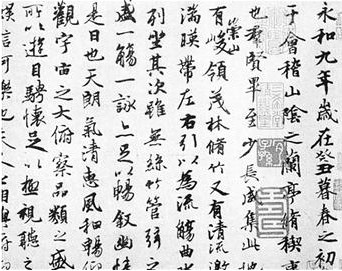 永和九年歲在癸丑暮春之初
于會稽山陰之蘭亭脩稧事
也羣賢畢至少長咸集此地
有崇山峻領茂林脩竹又有清流激
湍暎帶左右引以為流觴曲水
列坐其次雖無絲竹管弦之
盛一觴一詠亦足以暢敘幽情
是日也天朗氣清惠風和暢仰
觀宇宙之大俯察品類之盛
所以遊目騁懷足以極視聽之
娛信可樂也夫人之相與